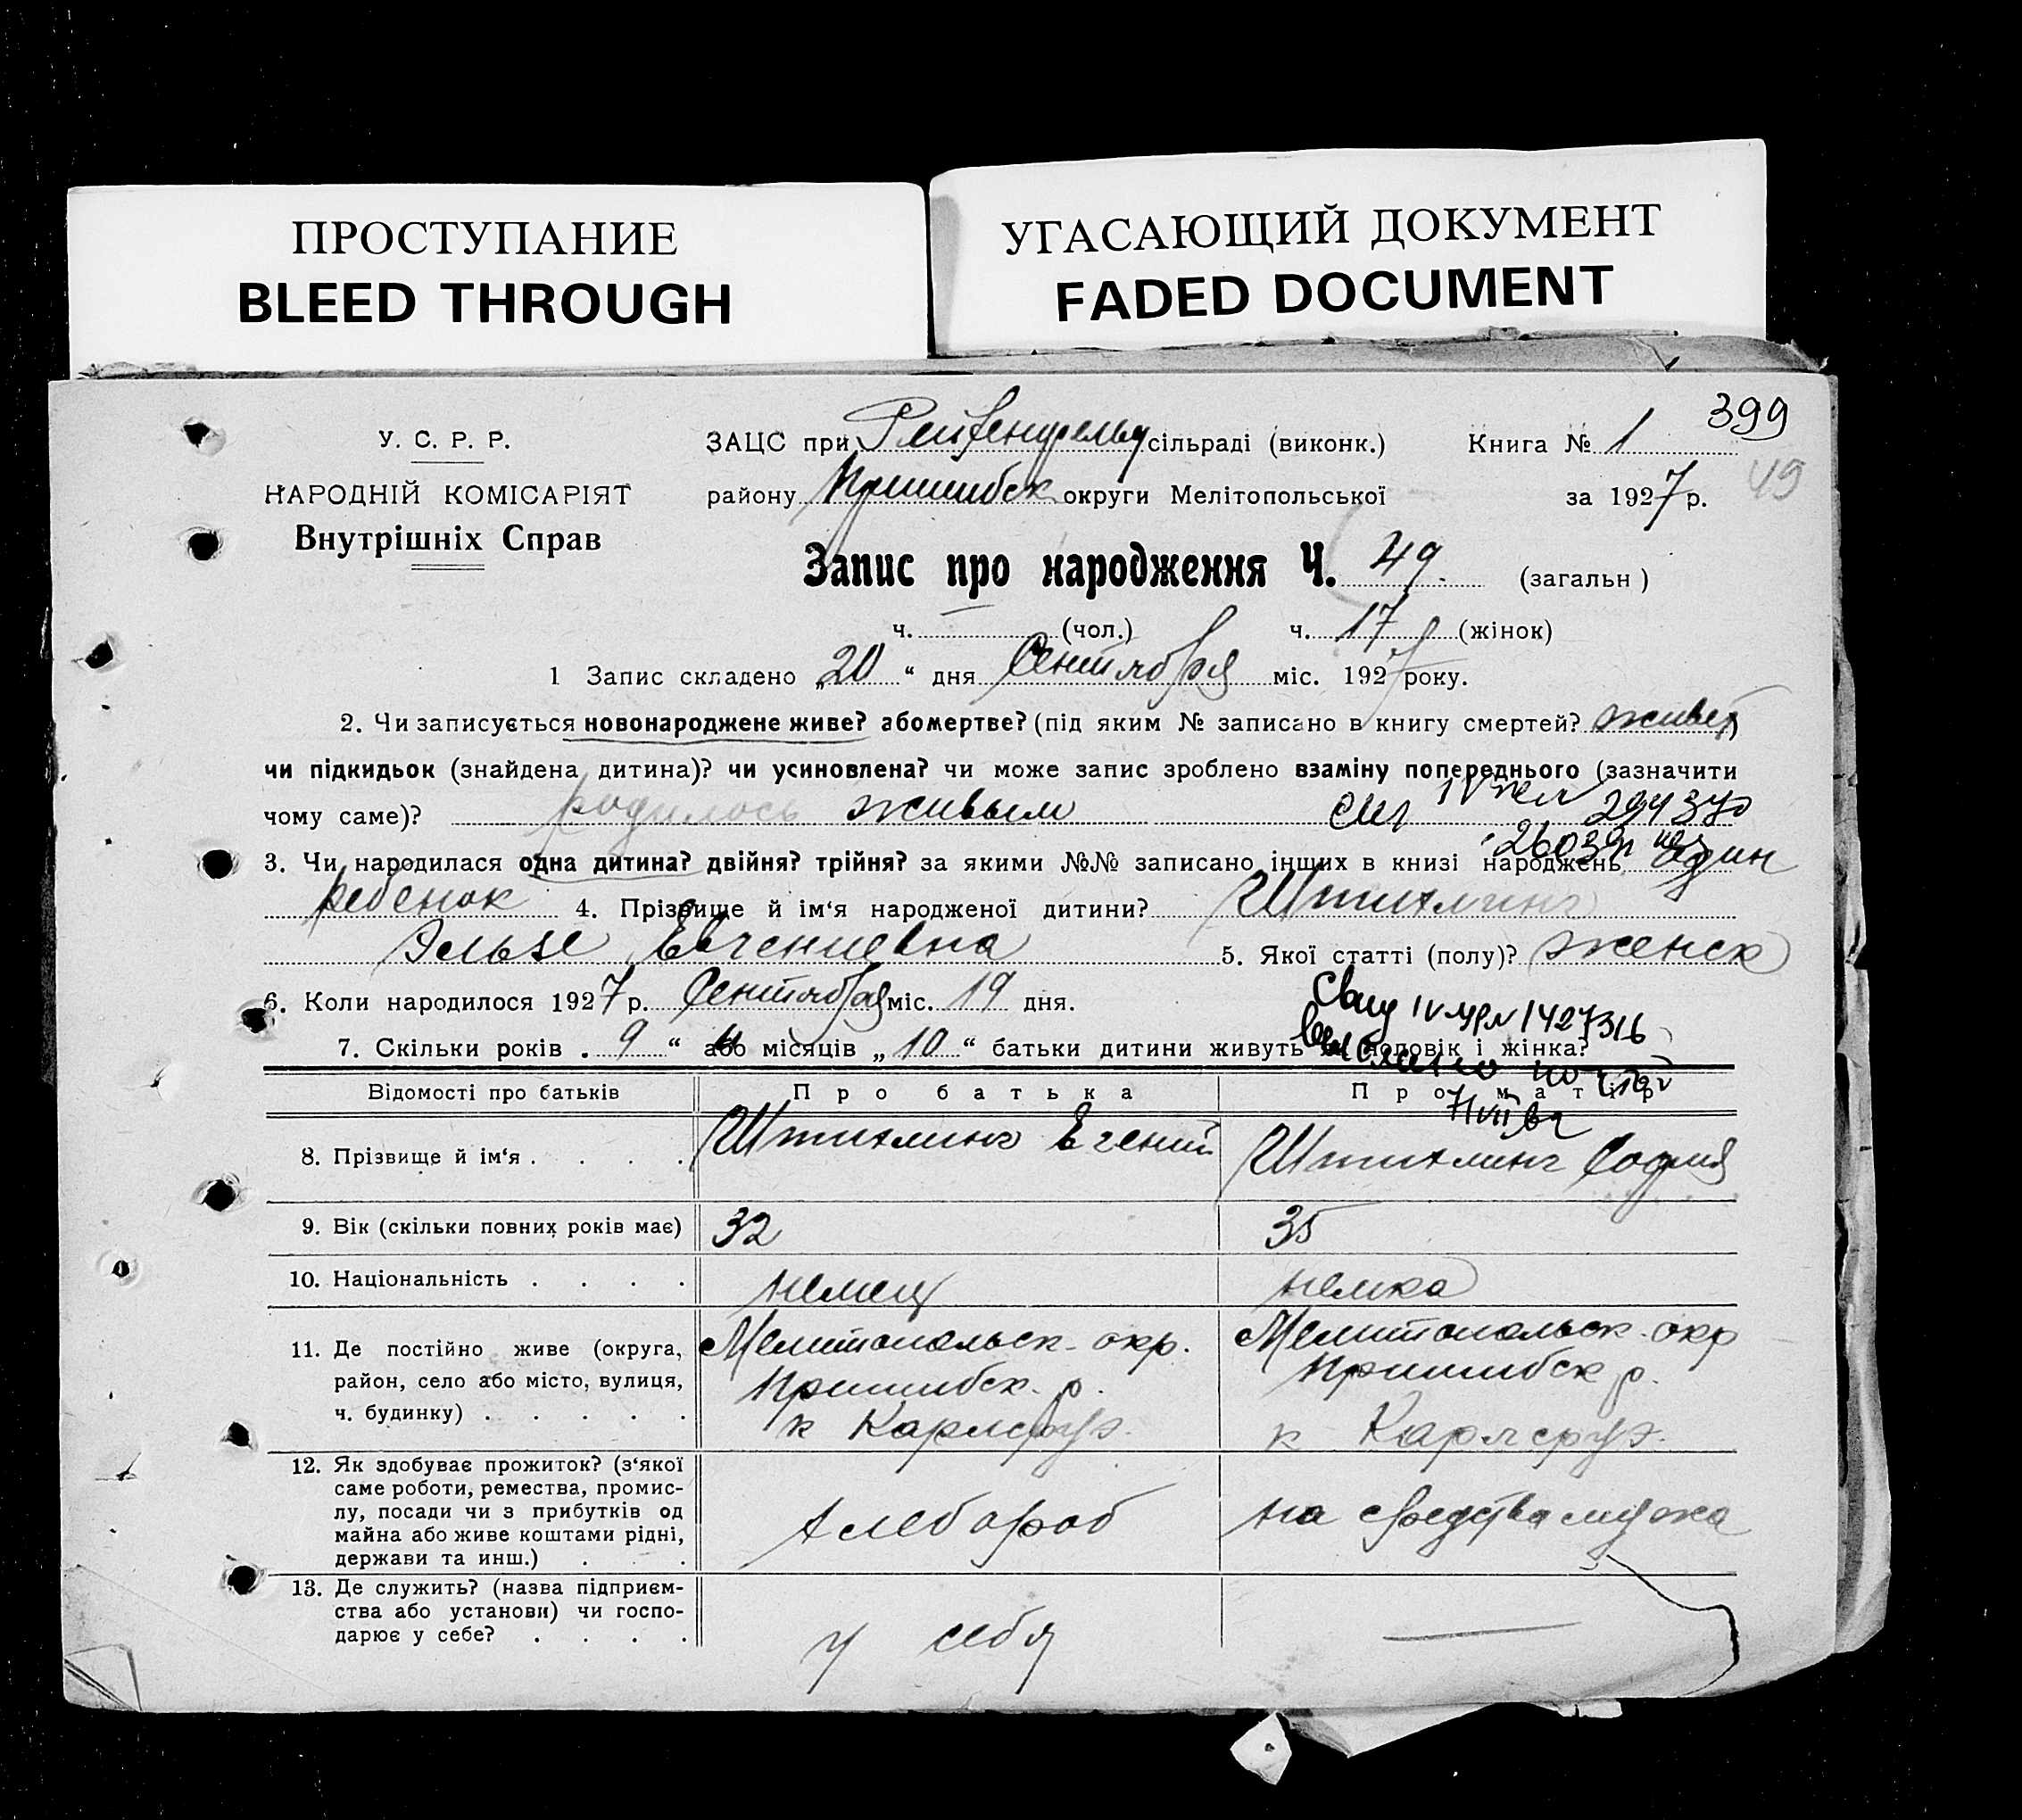 ПРОСТУПАНИЕ
BLEED THROUGH
УГАСАЮЩИЙ ДОКУМЕНТ
FADED DOCUMENT
399
49
У. С. Р. Р.
НАРОДНІЙ КОМІСАРІЯТ
Внутрішніх Справ
ЗАЦС при Рейхенфельд сільраді (виконк.) Книга № 1
району Пришибск округи Мелітопольської за 1927 р.
Запис про народження Ч. 49. (загальн)
ч. — (чол.) ч. 17 (жінок)
1 Запис складено „20“ дня Сентября міс. 1927 року.
2. Чи записується новонароджене живе? або мертве? (під яким № записано в книгу смертей?
чи підкидьок (знайдена дитина)? чи усиновлена? чи може запис зроблено взаміну попереднього (зазначити
чому саме)? родилось живым
294370
3. Чи народилася одна дитина? двійня? трійня? за якими №№ записано інших в книзі народжень один
ребенок 4. Прізвище й ім‘я народженої дитини? Штихлинг
Эльзе Евгениевна 5. Якої статті (полу)? женск
6. Коли народилося 1927 р. Сентября міс. 19 дня.
7. Скільки років „9“ або місяців „10“ батьки дитини живуть як чоловік і жінка?
1427316
Відомості про батьків Про батька Про матір
8. Прізвище й ім‘я . . . . Штихлинг Евгений Штихлинг София
9. Вік (скільки повних років має) 32 35
10. Національність . . . . немец немка
11. Де постійно живе (округа, Мелитопольск. окр. Мелитопольск. окр
район, село або місто, вулиця, Пришибск. р. Пришибск р.
ч. будинку) . . . . . к Карлсруэ. к Карлсруэ.
12. Як здобуває прожиток? (з‘якої
саме роботи, ремества, промис-
лу, посади чи з прибутків од хлебороб на средства мужа
майна або живе коштами рідні,
держави та инш.) . . .
13. Де служить? (назва підприєм-
ства або установи) чи госпо-
дарює у себе? . . . . у себя —